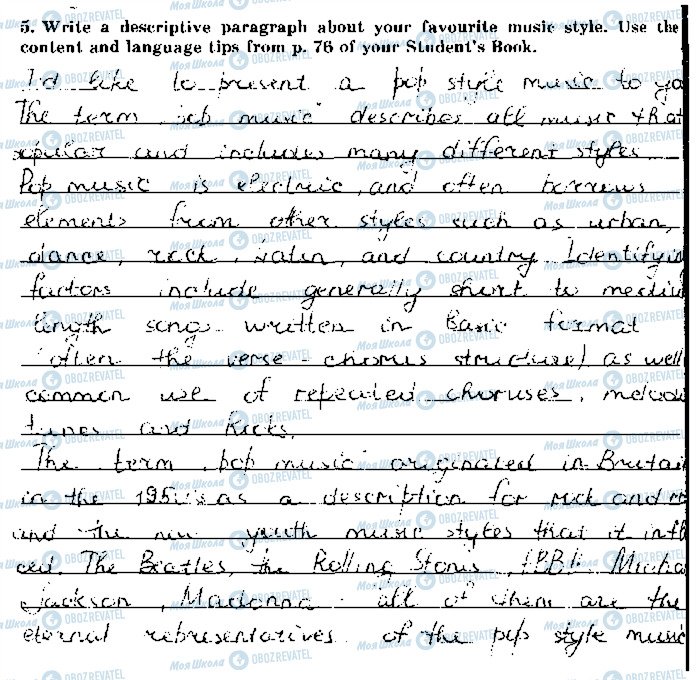 5. Write a descriptive paragraph about your favourite music style. Use the
content and language tips from p. 76 of your Student's Book.
I'd like to present a pop style music to yo
The term „pop music" describes all music that
opular and includes many different styles.
Pop music is electric, and often borrows
elements from other styles such as urban,
dance, rock, latin, and country. Identifyin
factors include generally short to mediu
length song written in basic format
(often the verse - chorus structure) as well
common use of repeated choruses, melodi
tunes and
The term „pop music" originated in Britain
in the 1950's as a description for rock and ro
and the new youth music styles that it infl
ced. The Beatles, the Rolling Stones, ABBA, Micha
Jackson, Madonna - all of them are the
eternal representatives of the pop style music